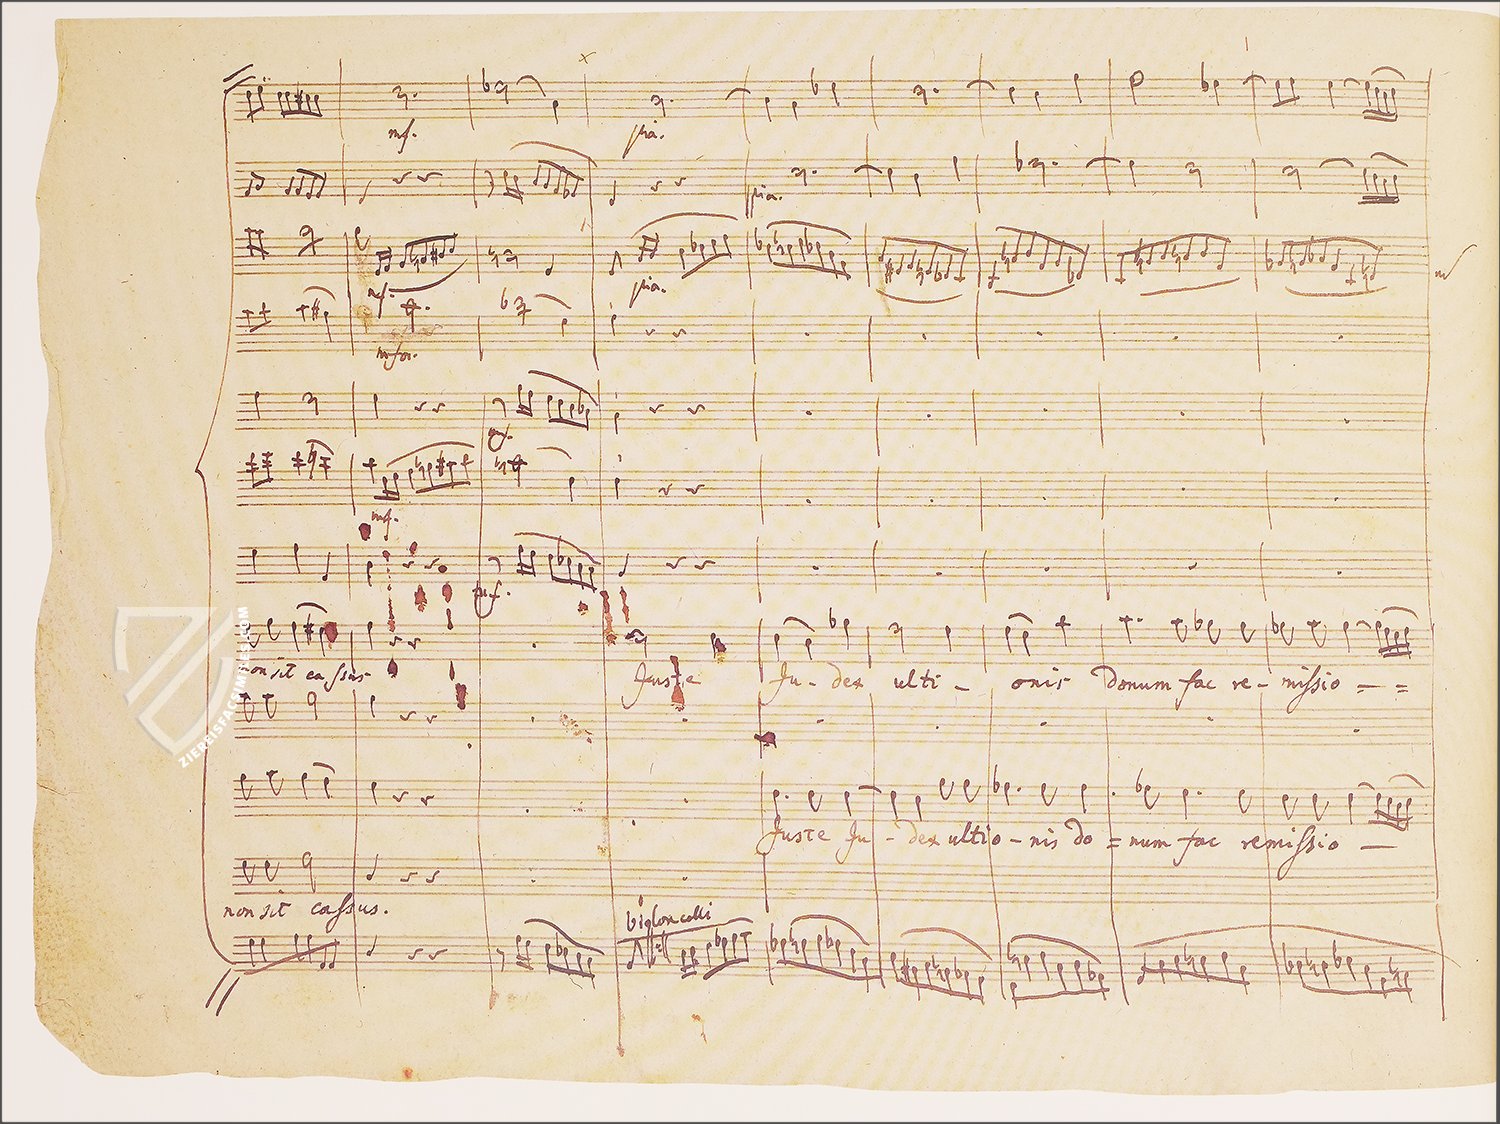 mf. pia.
pia.
mf. pia.
mfor.
mf.
mf.
non sit cassus. Juste Ju - dex ulti - onis donum fac re - missio = =
Juste Ju - dex ultio - nis do = num fac remissio -
non sit cassus.
violoncelli
ZIEREISFACSIMILES.COM